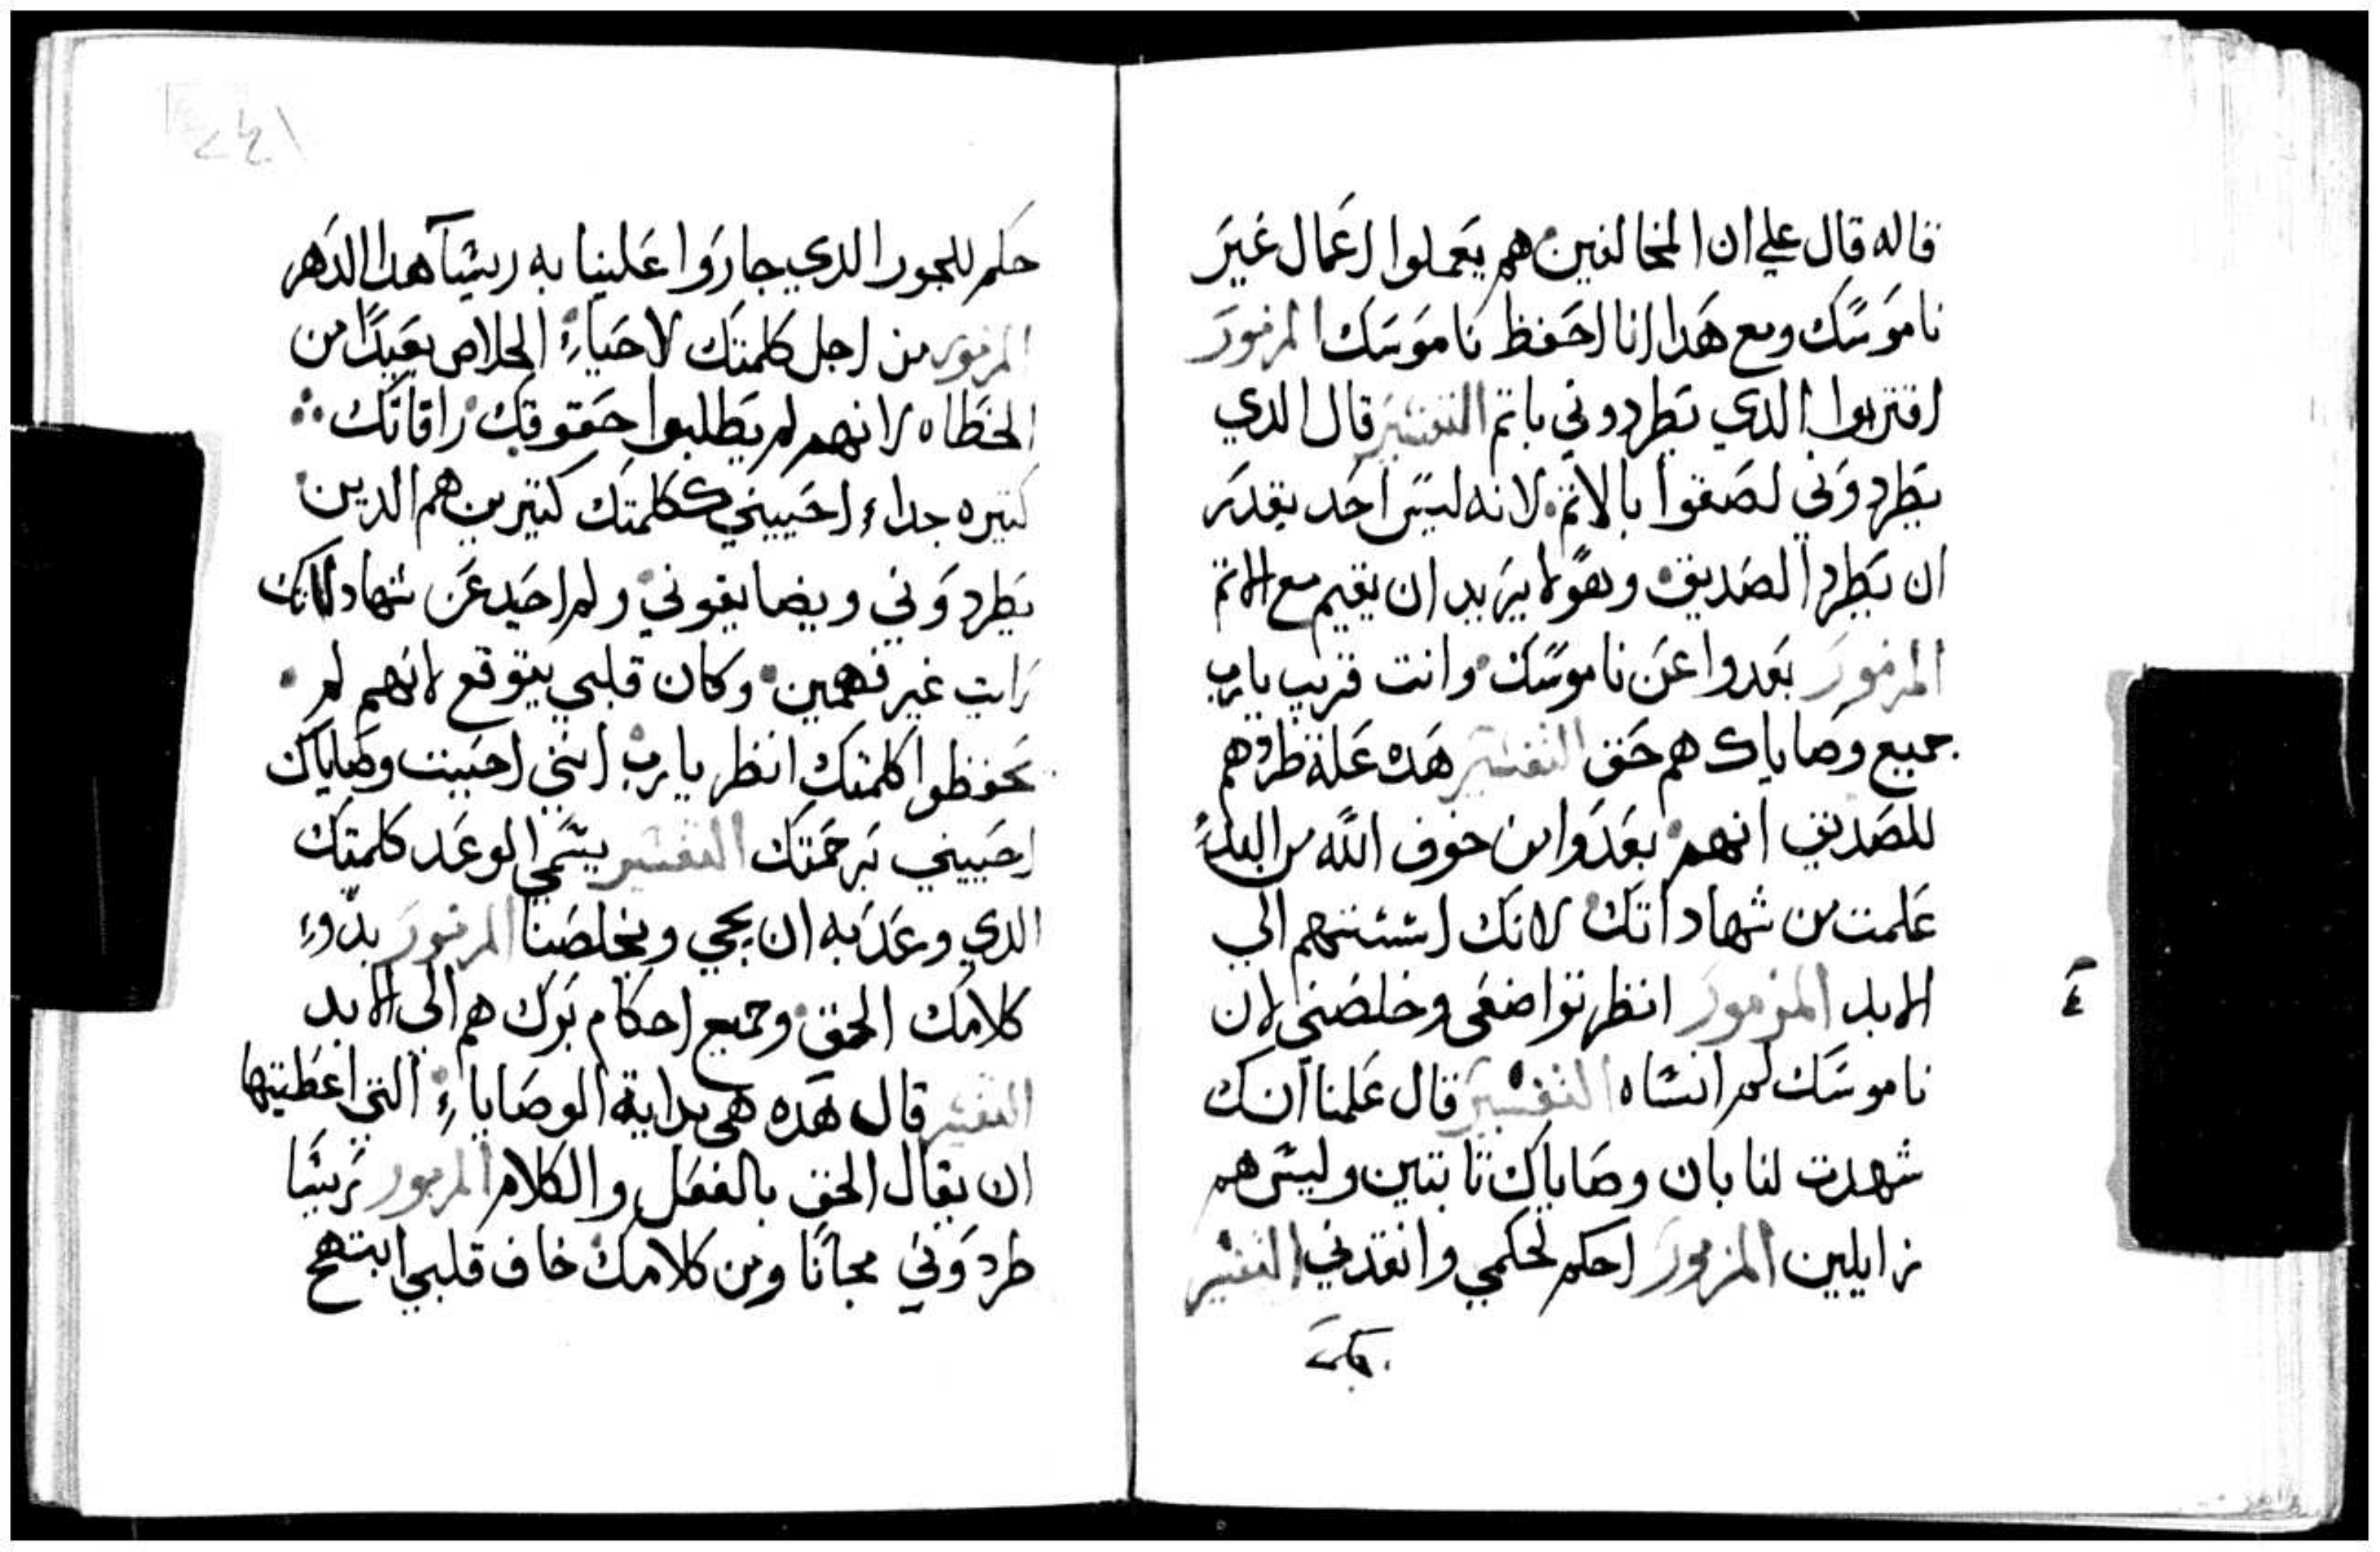 قاله قال علي ان المخالفين هم يعملوا اعمال غير
ناموسك ومع هدا انا احفظ ناموسك المزمور
اقتربوا الدي يطردوني باتم التفسير قال الدي
يطردوني لصقوا بالاتم لانه ليس احد يقدر
ان يطرد الصديق وهو لا يريد ان يقيم مع الاتم
المزمور بعدوا عن ناموسك وانت قريب يارب
جميع وصاياك هم حق التفسير هده علة طردهم
للصديق انهم بعدوا من خوف الله من البدء
علمت من شهاداتك لانك اسستهم الي
الابد المزمور انظر تواضعي وخلصني لان
ناموسك لم انساه التفسير قال علمنا انك
شهدت لنا بان وصاياك تابتين وليس هم
زايلين المزمور احكم لحكمي وانقدني التفسير
٢٤١
حكم للجور الدي جاروا علينا به ريسا هدا الدهر
المزمور من اجل كلمتك لاحياء الخلاص بعيدا من
الخطاه لانهم لم يطلبوا حقوقك رافاتك
كتيره جداء احييني ككلمتك كتيرين هم الدين
يطردوني ويضايقوني ولم احيد عن شهاداتك
رايت غير فهمين وكان قلبي يتوقع لانهم لم
يحفظوا كلمتك انظر يارب انني احببت وصاياك
احييني برحمتك التفسير يسمي الوعد كلمتك
الدي وعد به ان يجي ويخلصنا المزمور بدوء
كلامك الحق وجميع احكام برك هم الي الابد
التفسير قال هده هي بداية الوصاياء التي اعطيتها
ان يقال الحق بالفعل والكلام المزمور ريسا
طردوني مجانا ومن كلامك خاف قلبي ابتهج